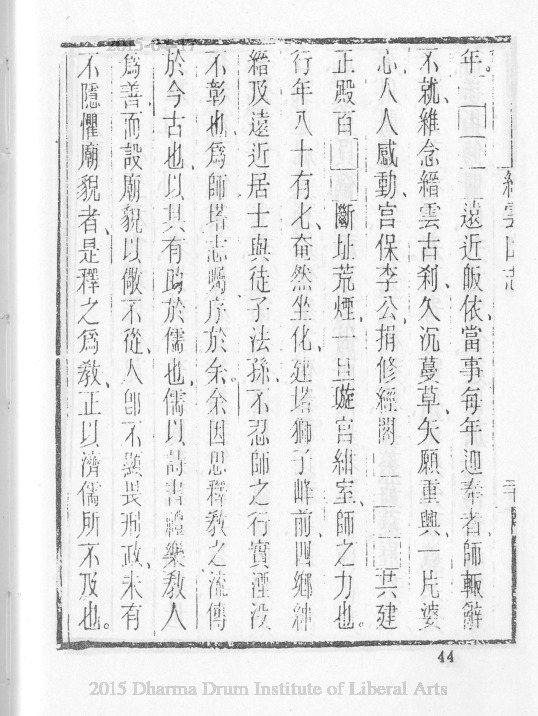 2015-0
縉雲山志
年。遠近皈依、當事每年迎奉者、師輒辭
不就、維念縉雲古刹、久沉蔓草、矢願重興、一片婆
心、人人感動、宮保李公、捐修經閣、共建
正殿、百斷址荒煙、一旦璇宮紺室、師之力也。
行年八十有七、奄然坐化、建塔獅子峰前、四鄉紳
縉及遠近居士與徒子法孫、不忍師之行實湮没
不彰也、爲師塔志、囑序於余。余因思釋教之流傳
於今古也、以其有助於儒也、儒以詩書禮樂教人
爲善、而設廟貌以儆不從、人卽不顯畏刑政、未有
不隱懼廟貌者、是釋之爲教、正以濟儒所不及也。
44
2015 Dharma Drum Institute of Liberal Arts